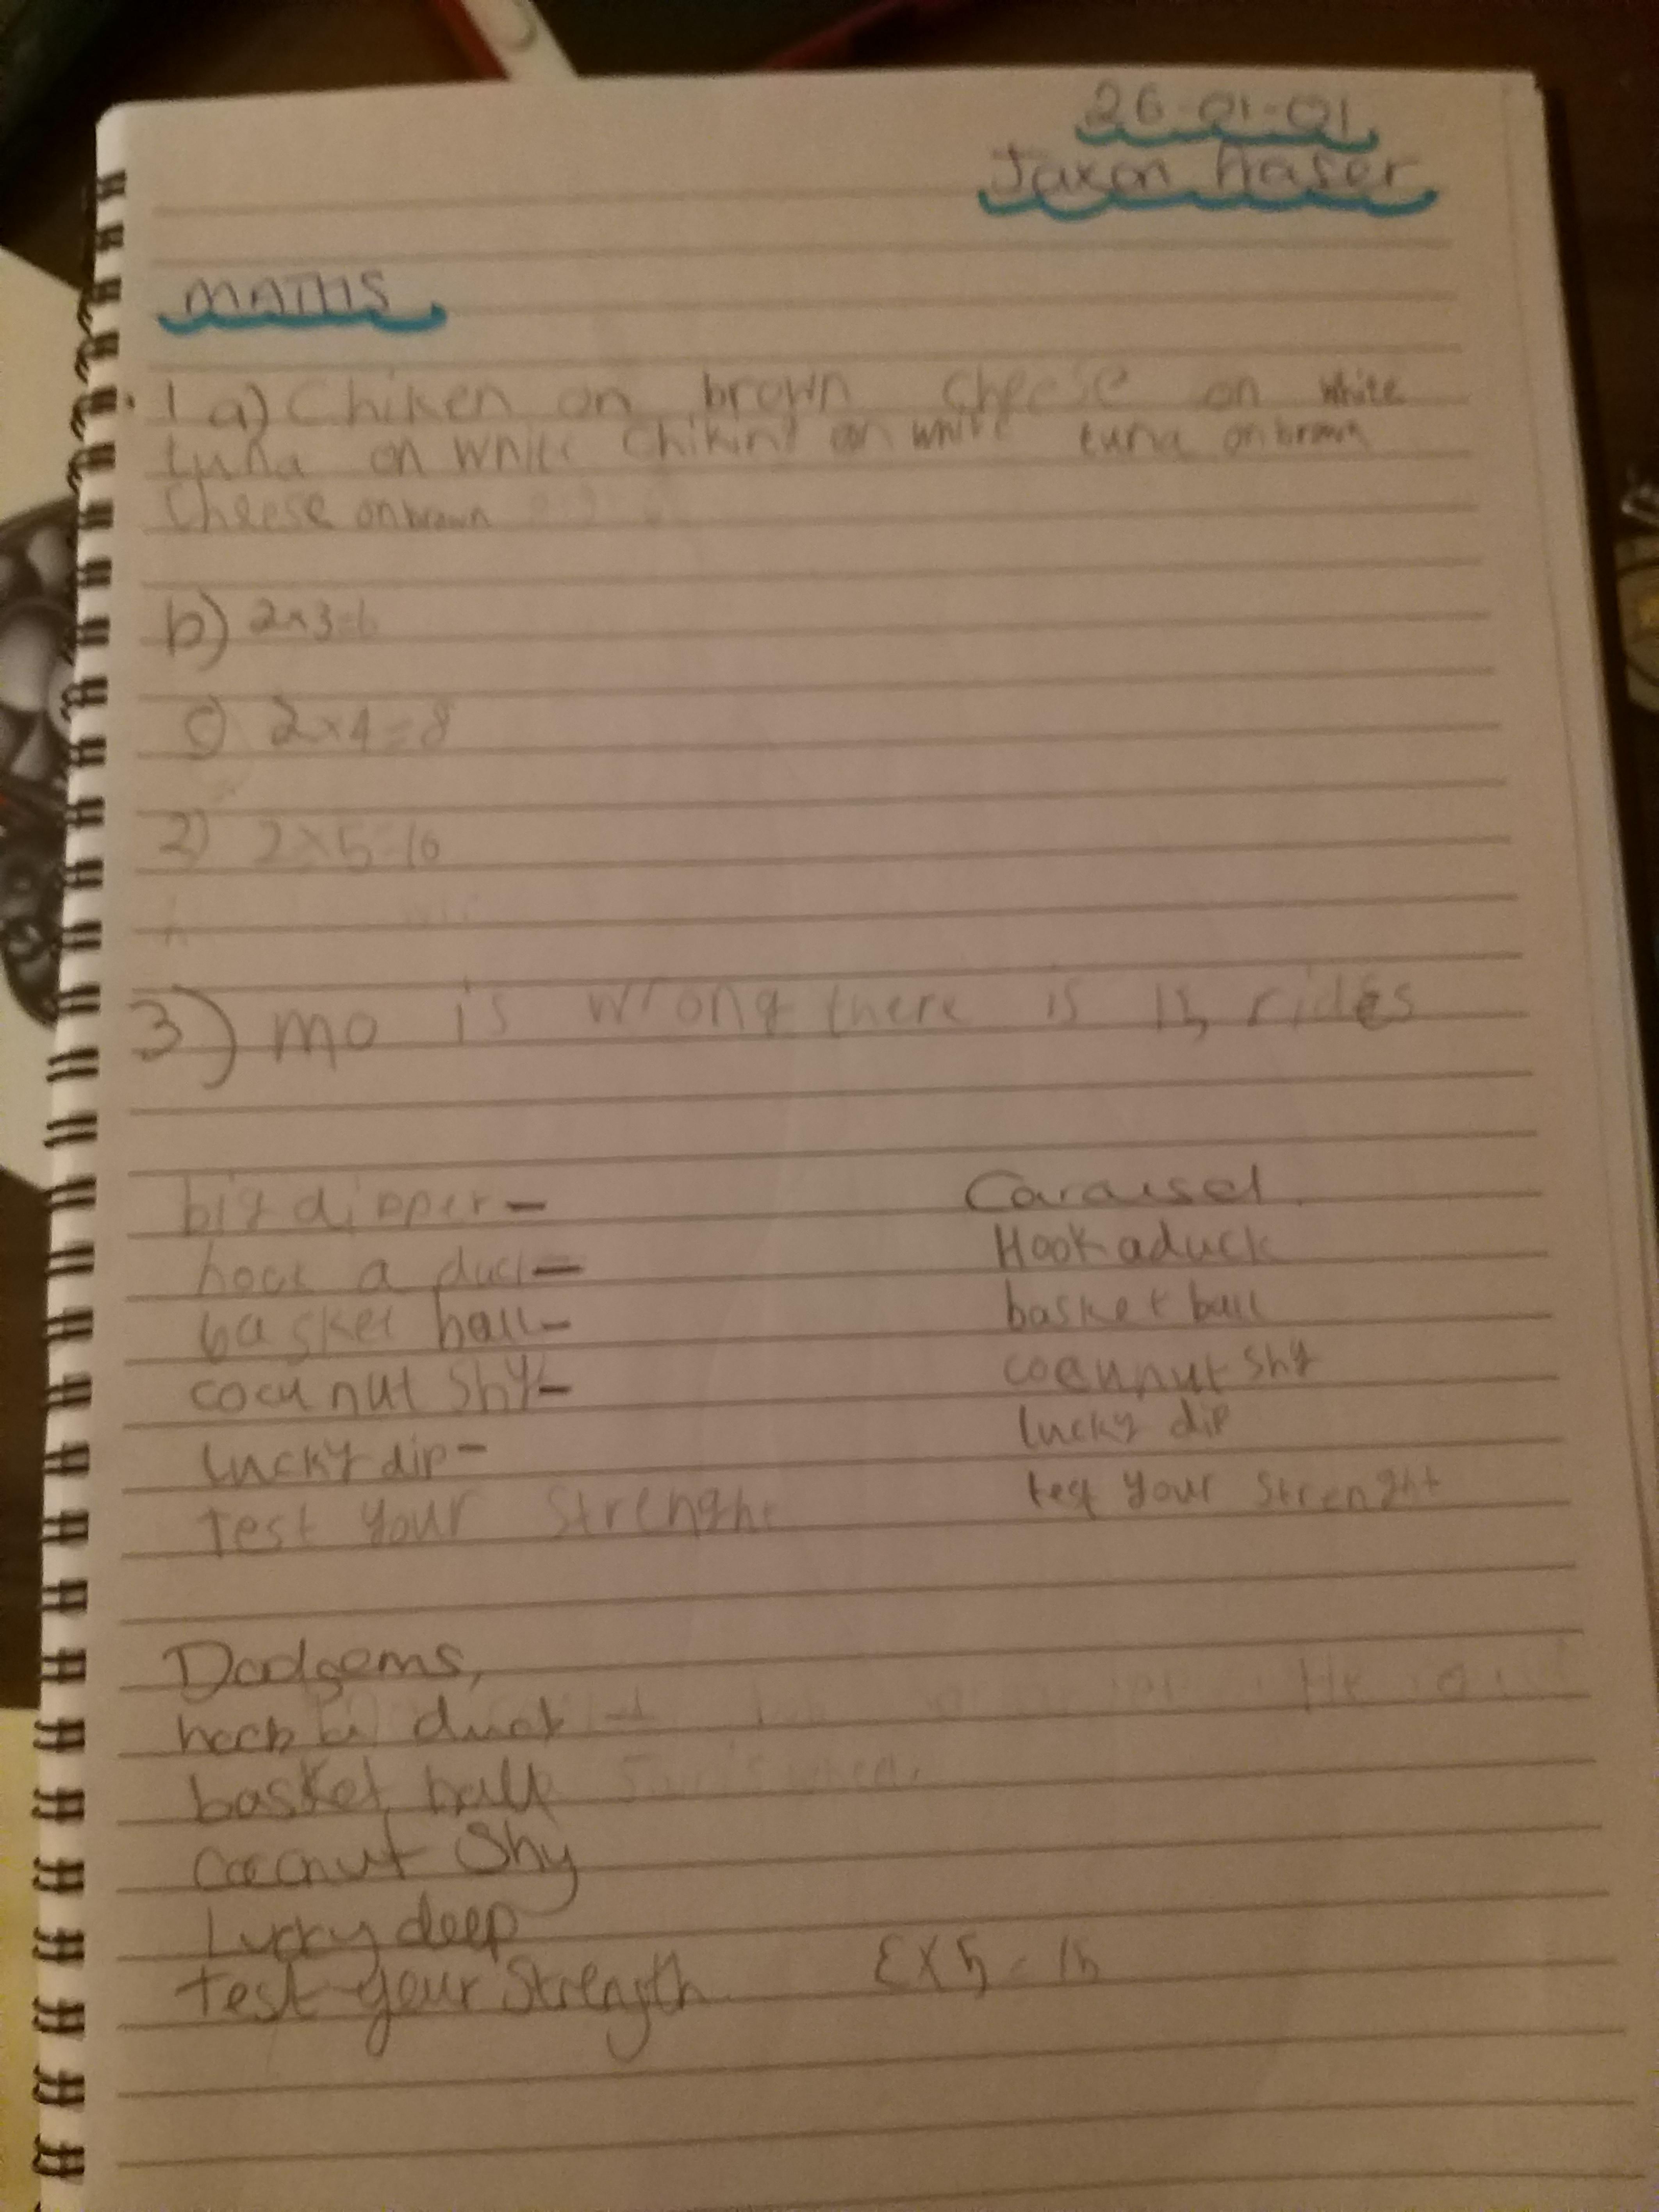 26-01-01
Jaxon Fraser
MATHS
1 a) Chiken on brown Cheese on white
tuna on white Chikin on white tuna on brown
Cheese on brown
b) 2x3=6
c) 2x4=8
2) 2x5=10
3) mo is wrong there is 15 rides
big dipper - Carausel
hook a duck - Hook a duck
basket ball - basket ball
cocunut shy - cocunut shy
lucky dip - lucky dip
test your Strenght test your Strenght
Dodgems,
hook a duck
basket ball
Coconut Shy
Lucky deep
test your Strength 3x5=15